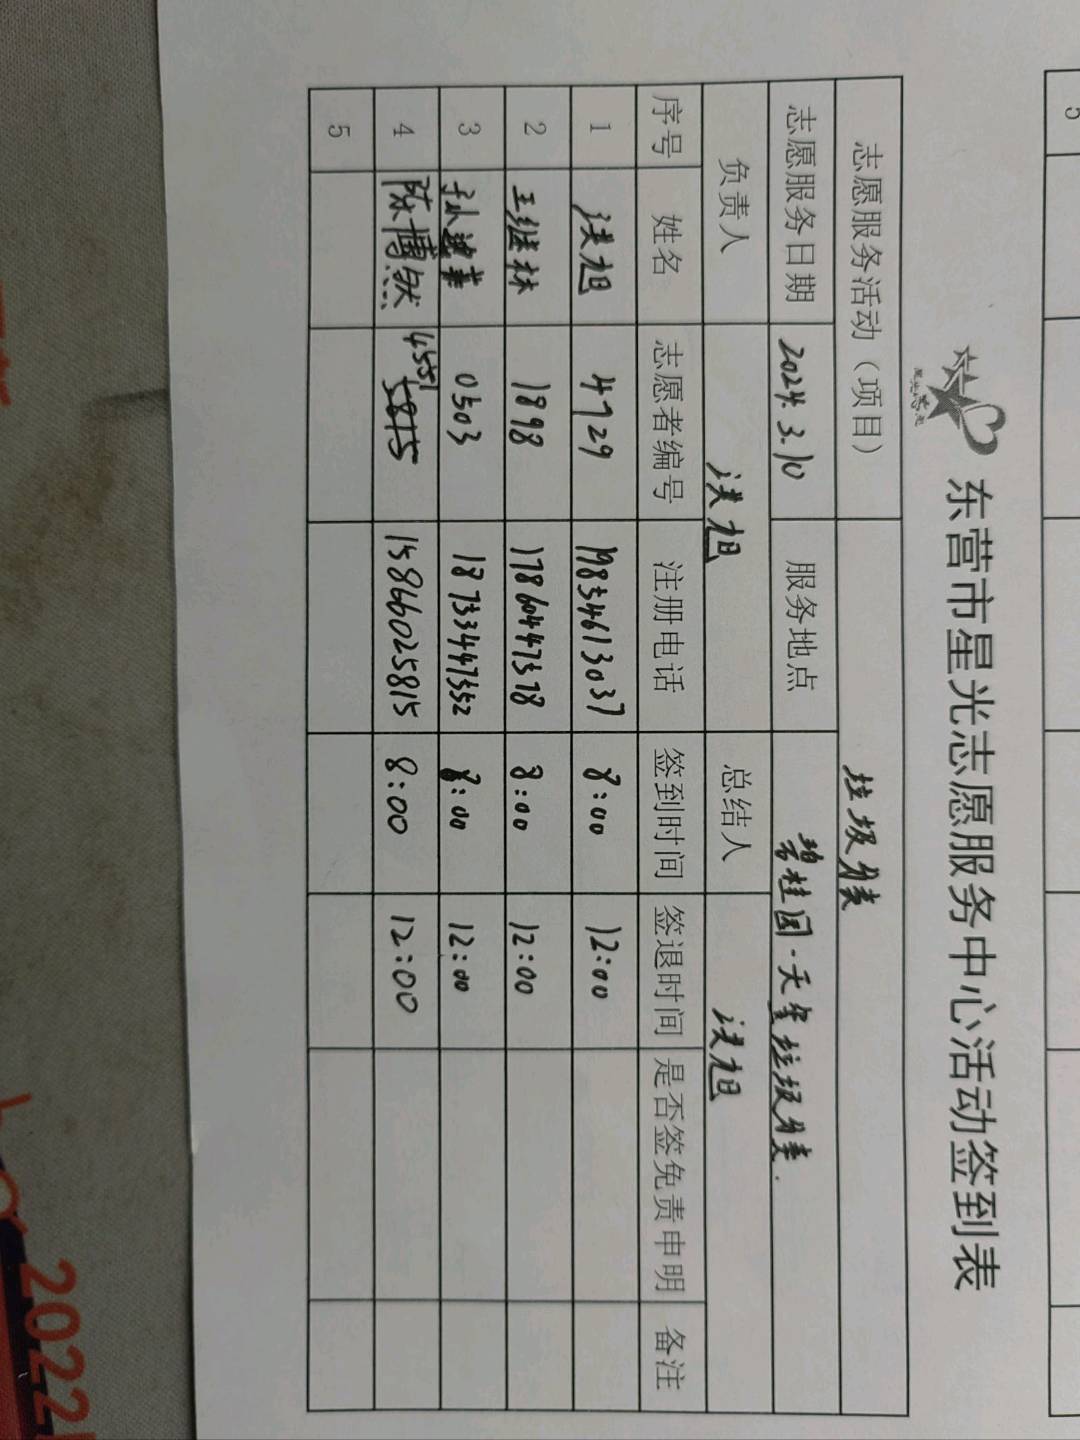 东营市星光志愿服务中心活动签到表
志愿服务活动（项目） 垃圾分类
志愿服务日期 2024.3.10 服务地点 碧桂园·天玺垃圾分类.
负责人 旭 总结人 旭
序号 姓名 志愿者编号 注册电话 签到时间 签退时间 是否签免责申明 备注
1 旭 4729 19834613037 8:00 12:00
2 王继林 1898 17860447378 8:00 12:00
3 孙建華 0503 18733447352 8:00 12:00
4 陈博然 4551 15866025815 8:00 12:00
5
5
2022